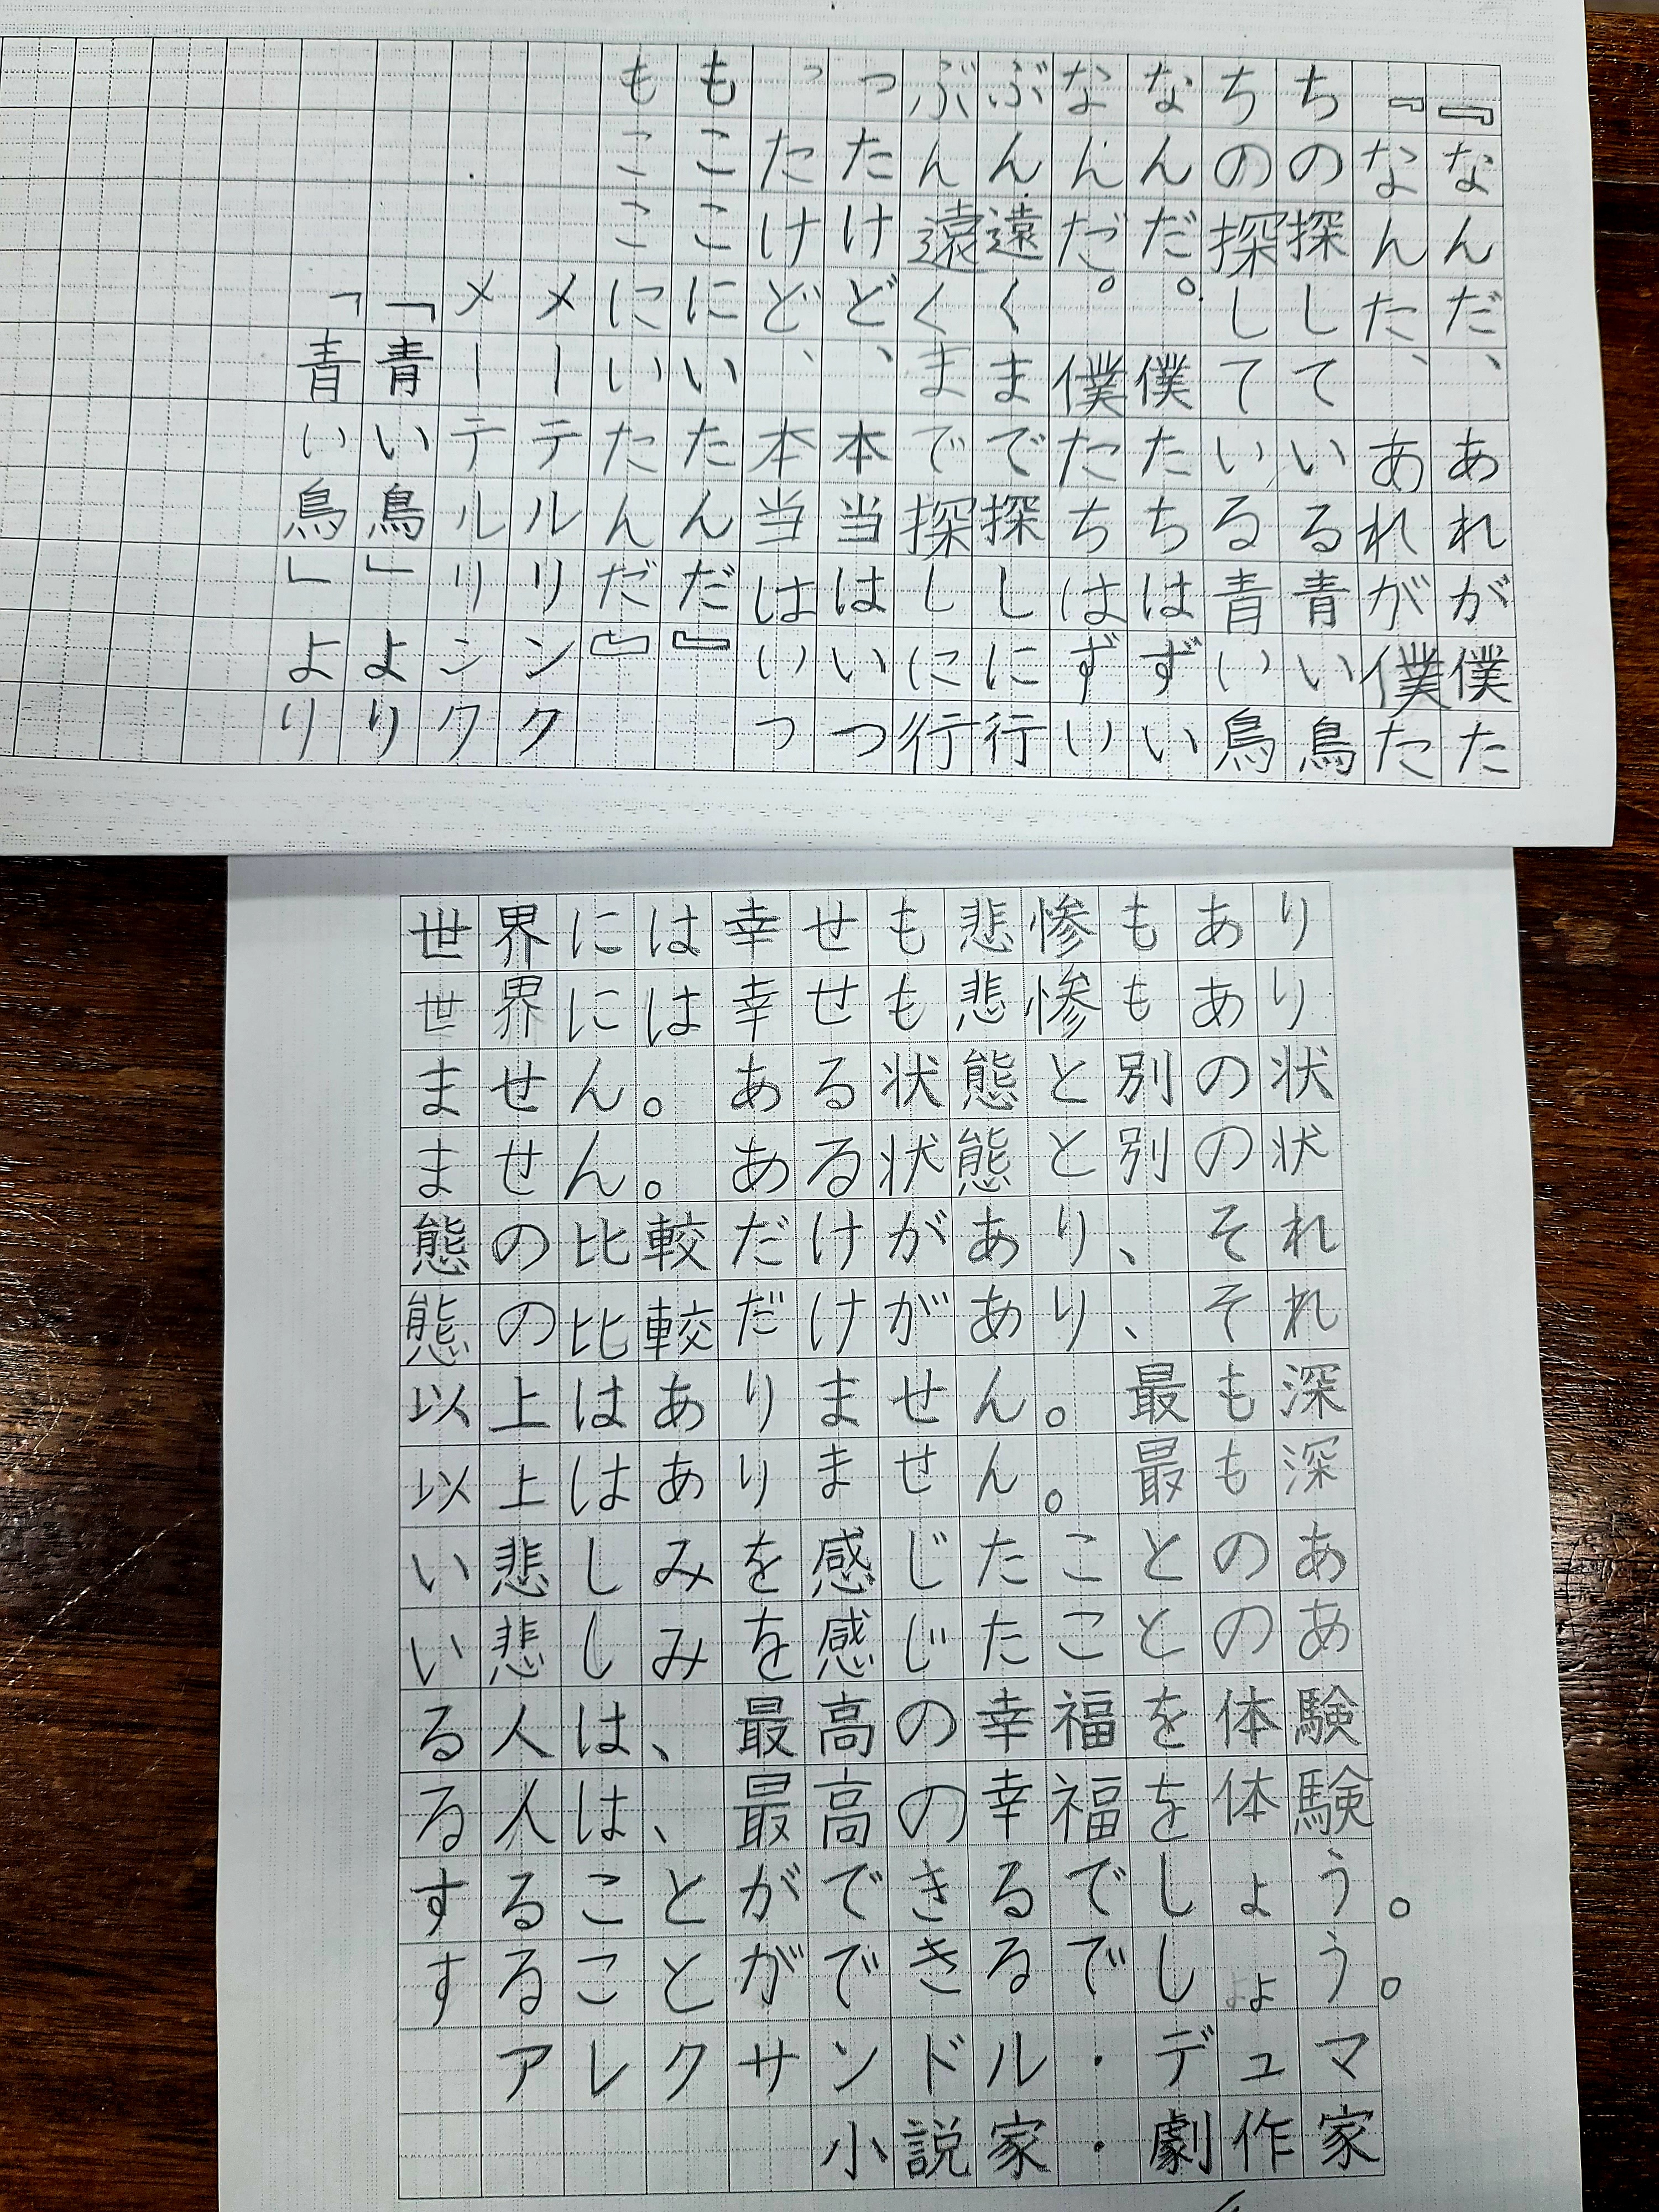 『なんだ、あれが僕た
『なんた、あれが僕た
ちの探している青い鳥
ちの探している青い鳥
なんだ。僕たちはずい
なんだ。僕たちはずい
ぶん遠くまで探しに行
ぶん遠くまで探しに行
ったけど、本当はいつ
ったけど、本当はいつ
もここにいたんだ』
もここにいたんだ』
メーテルリンク
メーテルリンク
「青い鳥」より
「青い鳥」より
世界には幸せも悲惨もあり
世界には幸せも悲惨もあり
ません。ある状態と別の状
ません。ある状態と別の状
態の比較だけがあり、それ
態の比較だけがあり、それ
以上はありません。最も深
以上はありません。最も深
い悲しみを感じたことのあ
い悲しみを感じたことのあ
る人は、最高の幸福を体験
る人は、最高の幸福を体験
することができるでしょう。
することができるでしょう。
アレクサンドル・デュマ
小説家・劇作家